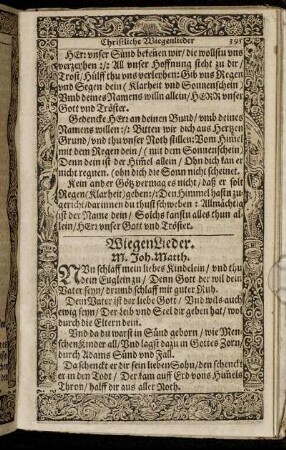 Christliche Wiegenlieder 391
HErr vnser Sünd bekennen wir / die wollstu vns
verzeyhen :/: All vnser Hoffnung steht zu dir /
Trost / Hülff thu vns verleyhen : Gib vns Regen
vnd Segen dein / Klarheit vnd Sonnenschein /
Vmb deines Namens willn allein / HERR vnser
Gott vnd Tröster.
Gedencke HErr an deinen Bund / vnd deines
Namens willen :/: Bitten wir dich aus Hertzen
Grund / vnd thu vnser Noth stillen : Vom Him̃el
mit dem Regen dein / mit dem Sonnenschein /
Denn dein ist der Him̃el allein / Ohn dich kan er
nicht regnen. (ohn dich die Sonn nicht scheinet.
Kein ander Götz vermag es nicht / daß er solt
Regen / Klarheit / geben :/: Den Himmel hastu zu-
gericht / darinnen du thust schweben : Allmächtig
ist der Name dein / Solchs kanstu alles thun al-
lein / HErr vnser Gott vnd Tröster.
WiegenLieder.
M. Joh. Matth.
NVn schlaff mein liebes Kindelein / vnd thu
dein Euglein zu / Denn Gott der wil dein
Vater seyn / drumb schlaff mit guter Ruh.
Dein Vater ist der liebe Gott / Vnd wils auch
ewig seyn / Der Leib vnd Seel dir geben hat / wol
durch die Eltern dein.
Vnd da du warst in Sünd geborn / wie Men-
schen Kinder all / Vnd lagst dazu in Gottes Zorn /
durch Adams Sünd vnd Fall.
Da schenckt er dir sein lieben Sohn / den schenckt
er in den Todt / Der kam auff Erd vons Him̃els
Thron / halff dir aus aller Noth.